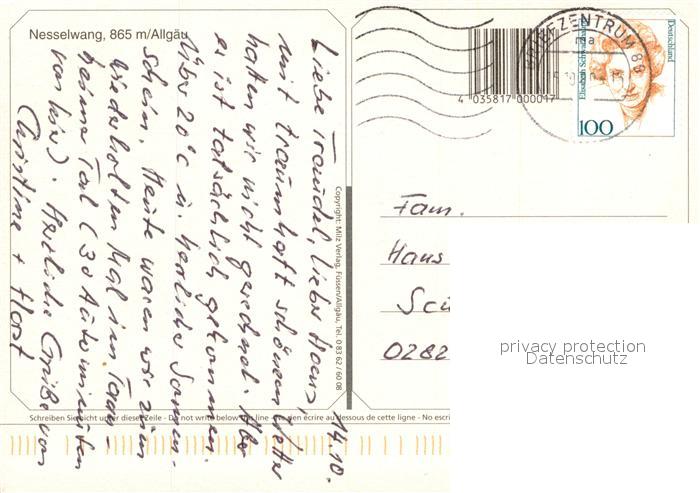 Nesselwang, 865 m/Allgäu
14.10.
Liebe Traudel, lieber Hans,
mit traumhaft schönem Wetter
hatten wir nicht gerechnet. Aber
es ist tatsächlich gekommen.
Über 20°C u. herrlicher Sonnen-
schein. Heute waren wir zum
wiederholten Mal im Tann-
heimer Tal (30 Autominuten
von hier). Herzliche Grüße von
Christine + Horst
Copyright: Milz Verlag, Füssen/Allgäu, Tel. 0 83 62 / 60 08
4 035817 000017
BRIEFZENTRUM 86
Elisabeth Schwarzhaupt
Deutschland
100
Fam.
Hans
0282
privacy protection
Datenschutz
Schreiben Sie nicht unter dieser Zeile - Do not write below this line - Ne rien écrire au dessous de cette ligne - No escri